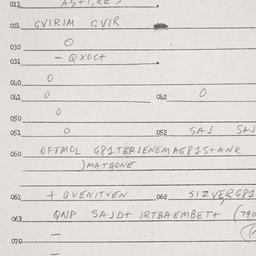 011 AS+1,RES
021 GVIRIM GVIR
030 O
031 - QXOC+
040 O
041 O 042 O
050 O
051 O 052 SAJ SAJ
060 OFTMOL G81TERJENEMAG81S+ANK
)MATGONE
061 + QVENITVEN 062 SIZVERG81
063 QNP SAJD+ IRTBAEMBET+ (790
070 -
-